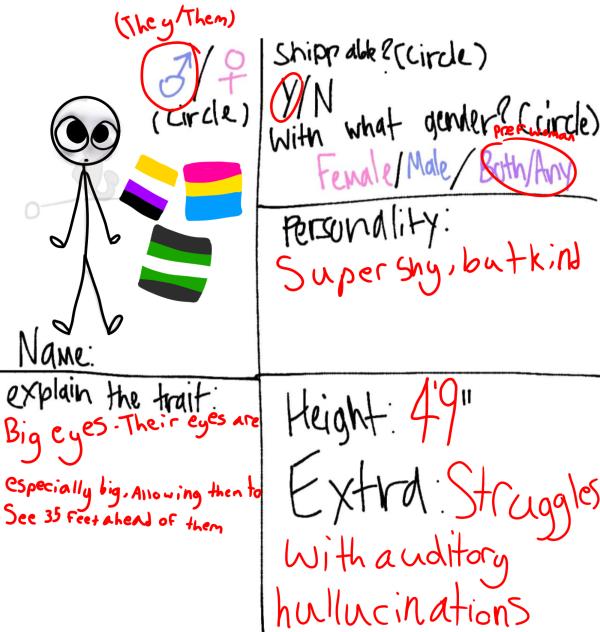 (They/Them)
♂/♀
(Circle)
Name:
Shippable?(Circle)
Y/N
With what gender?(circle)
Pref woman
Female/Male/Both/Any
Personality:
Super shy, but kind
explain the trait:
Big eyes-Their eyes are
especially big, Allowing them to
See 35 feet ahead of them
Height: 4'9"
Extra: Struggles
with auditory
hullucinations